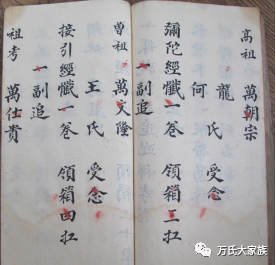 高祖 萬朝宗
龍
何 氏 受念
彌陀經懺一卷 領箱二扛
一副追
曾祖 萬文隆
王氏 受念
接引經懺一卷 領箱四扛
一副追
祖考 萬仕貴
万氏大家族